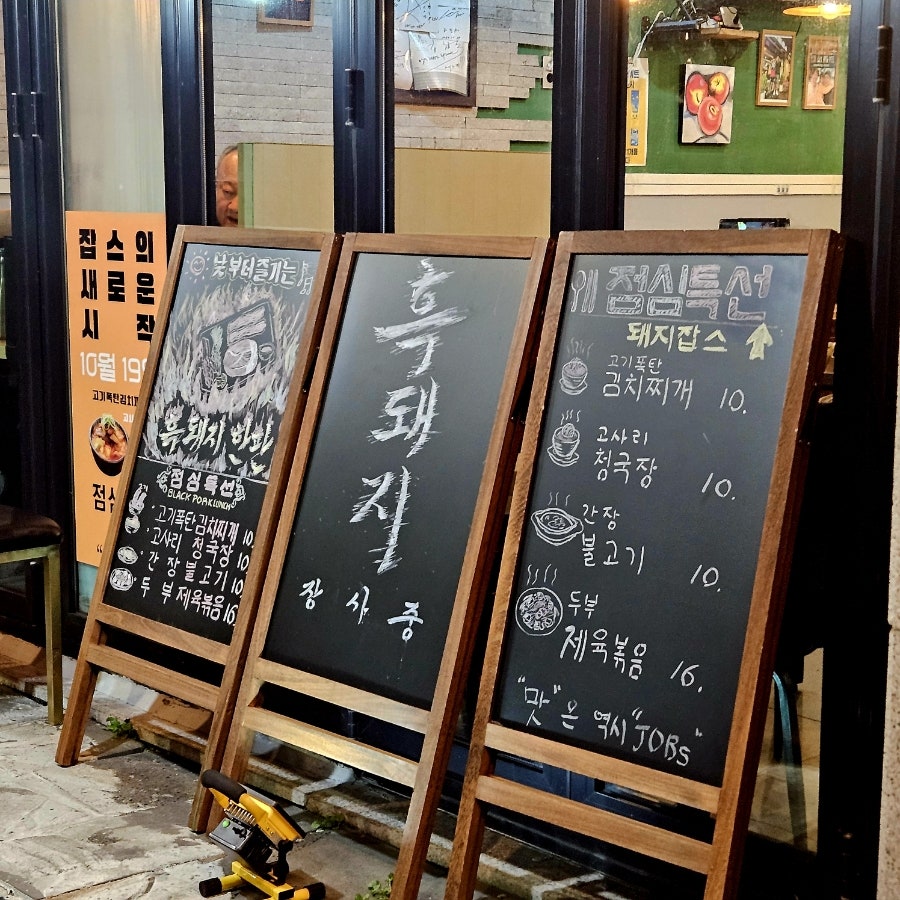 잡스의
새로운
시작
10월 19
고기폭탄김치찌
점심
낮부터즐기는
흑돼지 한판
점심특선
BLACK PORK LUNCH
· 고기폭탄김치찌개 10.
· 고사리 청국장 10
· 간장 불고기 10
· 두부 제육볶음 16.
흑돼지
장사중
점심특선
돼지잡스
고기폭탄
김치찌개 10.
고사리
청국장 10.
간장
불고기 10.
두부
제육볶음 16.
"맛"은 역시 "JOBs"